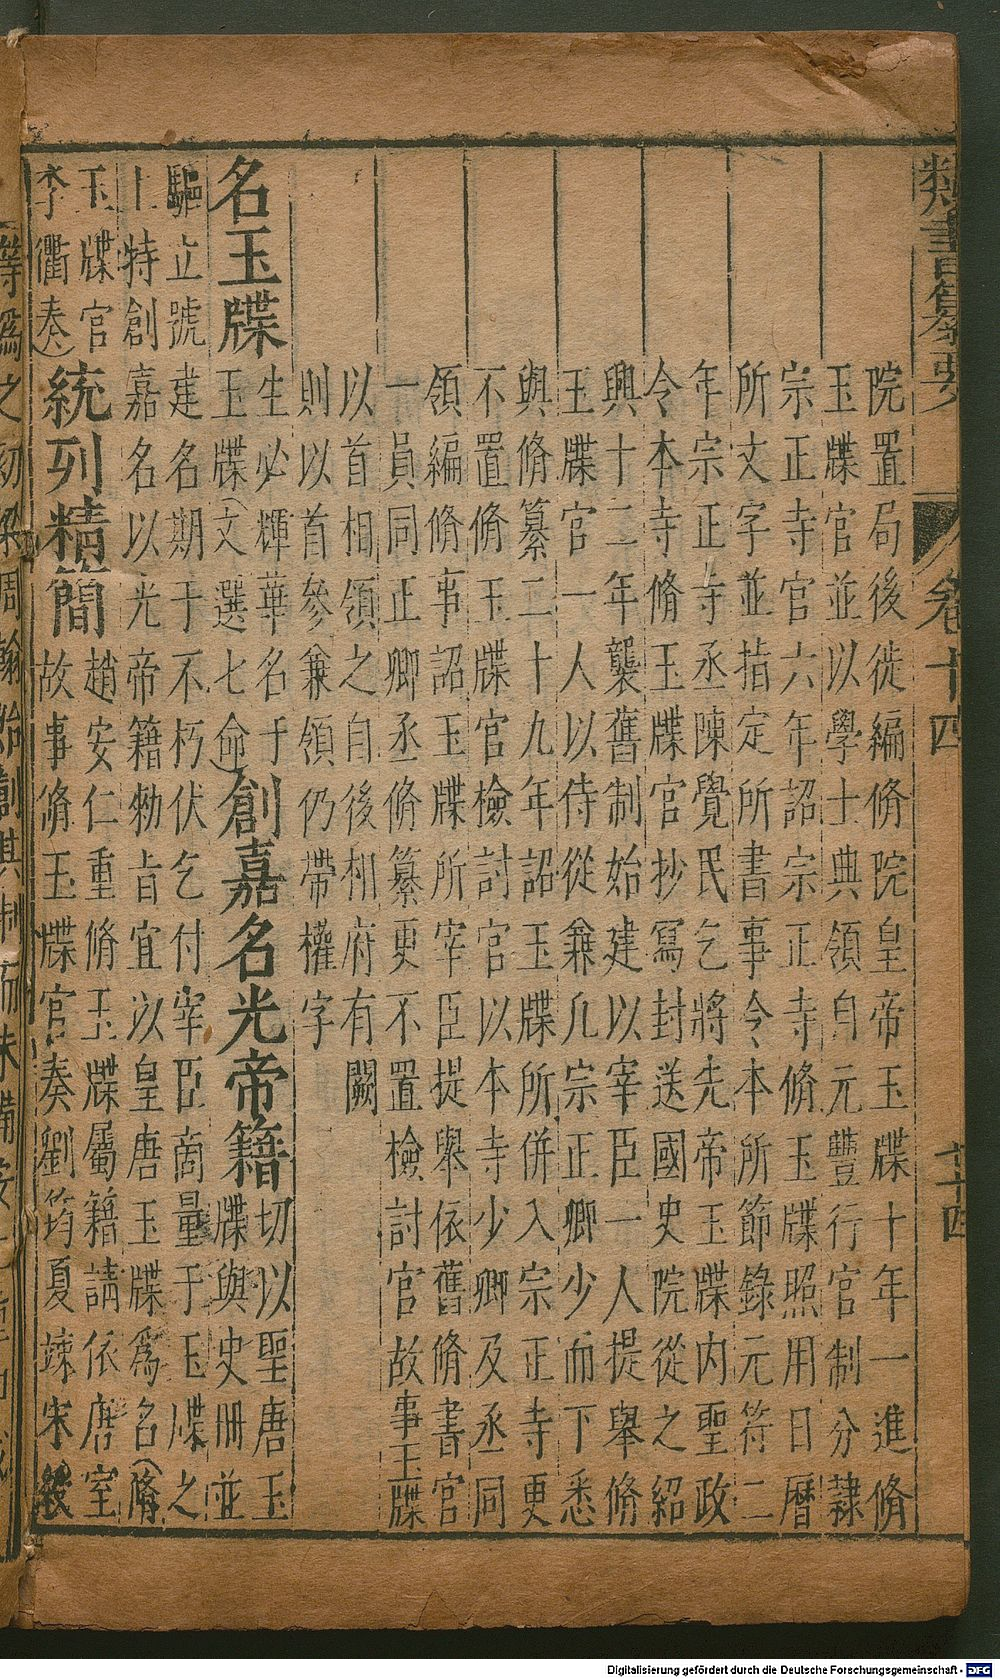 類書纂要
卷十四
二十四
院置局後徙編脩院皇帝玉牒十年一進脩
玉牒官並以學士典領自元豐行官制分隷
宗正寺官六年詔宗正寺脩玉牒照用日曆
所文字並指定所書事令本所節錄元符二
年宗正寺丞陳覺民乞將先帝玉牒内聖政
令本寺脩玉牒官抄冩封送國史院從之紹
興十二年襲舊制始建以宰臣一人提舉脩
玉牒官一人以侍從兼凡宗正卿少而下悉
與脩纂二十九年詔玉牒所併入宗正寺更
不置脩玉牒官檢討官以本寺少卿及丞同
領編脩事詔玉牒所宰臣提舉依舊脩書官
一員同正卿丞脩纂更不置檢討官故事玉牒
以首相領之自後相府有闕
則以首參兼領仍帶權字
名玉牒
生必輝華名于
玉牒（文選七命）
創嘉名光帝籍
切以聖唐玉
牒與史冊並
驅立號建名期于不朽伏乞付宰臣商量于玉牒之
上特創嘉名以光帝籍勅旨宜以皇唐玉牒爲名（脩
玉牒官
李衢奏）
統列精簡
趙安仁重脩玉牒屬籍請依唐室
故事脩玉牒官奏劉筠夏竦宋綬
等爲之初梁周翰始創其制而未備